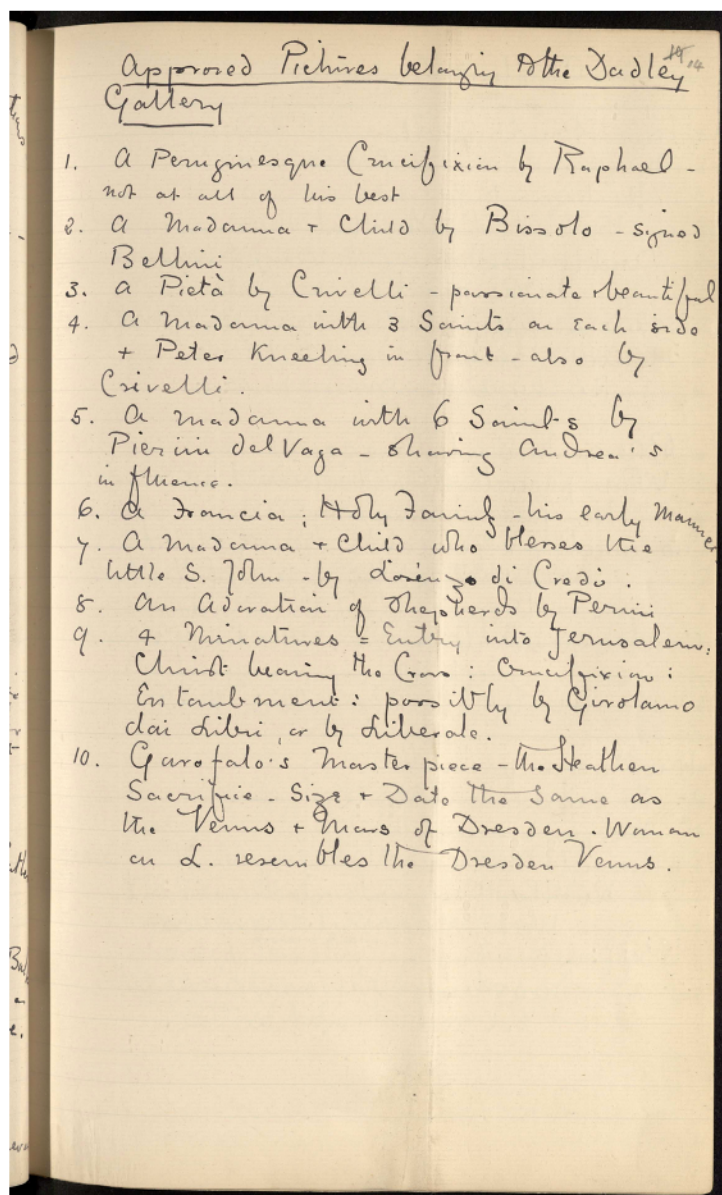 Approved Pictures belonging to the Dudley
14
Gallery
1. A Peruginesque Crucifixion by Raphael -
not at all of his best
2. A Madonna + Child by Bissolo - signed
Bellini
3. A Pietà by Crivelli - passionate + beautiful
4. A Madonna with 3 Saints on each side
+ Peter Kneeling in front - also by
Crivelli.
5. A Madonna with 6 Saints by
Pierin del Vaga - showing Andrea's
influence.
6. A Francia; Holy Family - his early manner
7. A Madonna + Child who blesses the
little S. John - by Lorenzo di Credi.
8. An Adoration of Shepherds by Perini
9. 4 Miniatures = Entry into Jerusalem:
Christ bearing the Cross: Crucifixion:
Entombment: possibly by Girolamo
dai Libri, or by Liberale.
10. Garofalo's Masterpiece - the Heathen
Sacrifice - Size + Date the same as
the Venus + Mars of Dresden. Woman
on L. resembles the Dresden Venus.